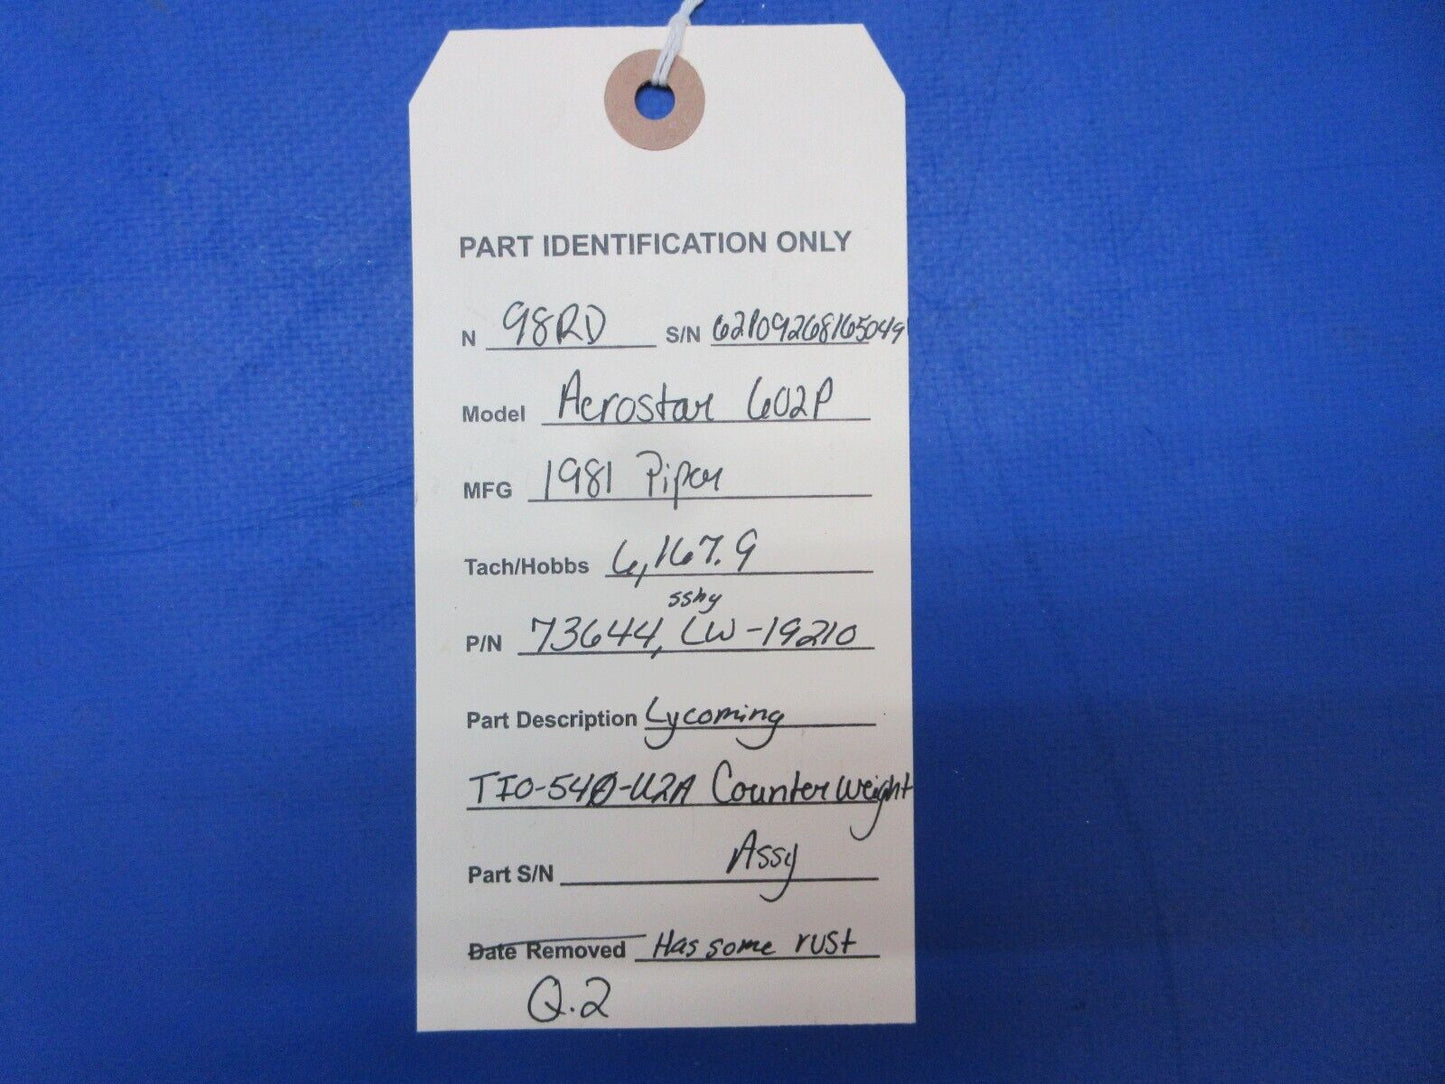 PART IDENTIFICATION ONLY
N 98RD S/N 62P09268165049
Model Aerostar 602P
MFG 1981 Piper
Tach/Hobbs 6,167.9
P/N 73644, LW-19210
Part Description Lycoming
TIO-540-U2A Counterweight
Part S/N Assy
Date Removed Has some rust
Q.2